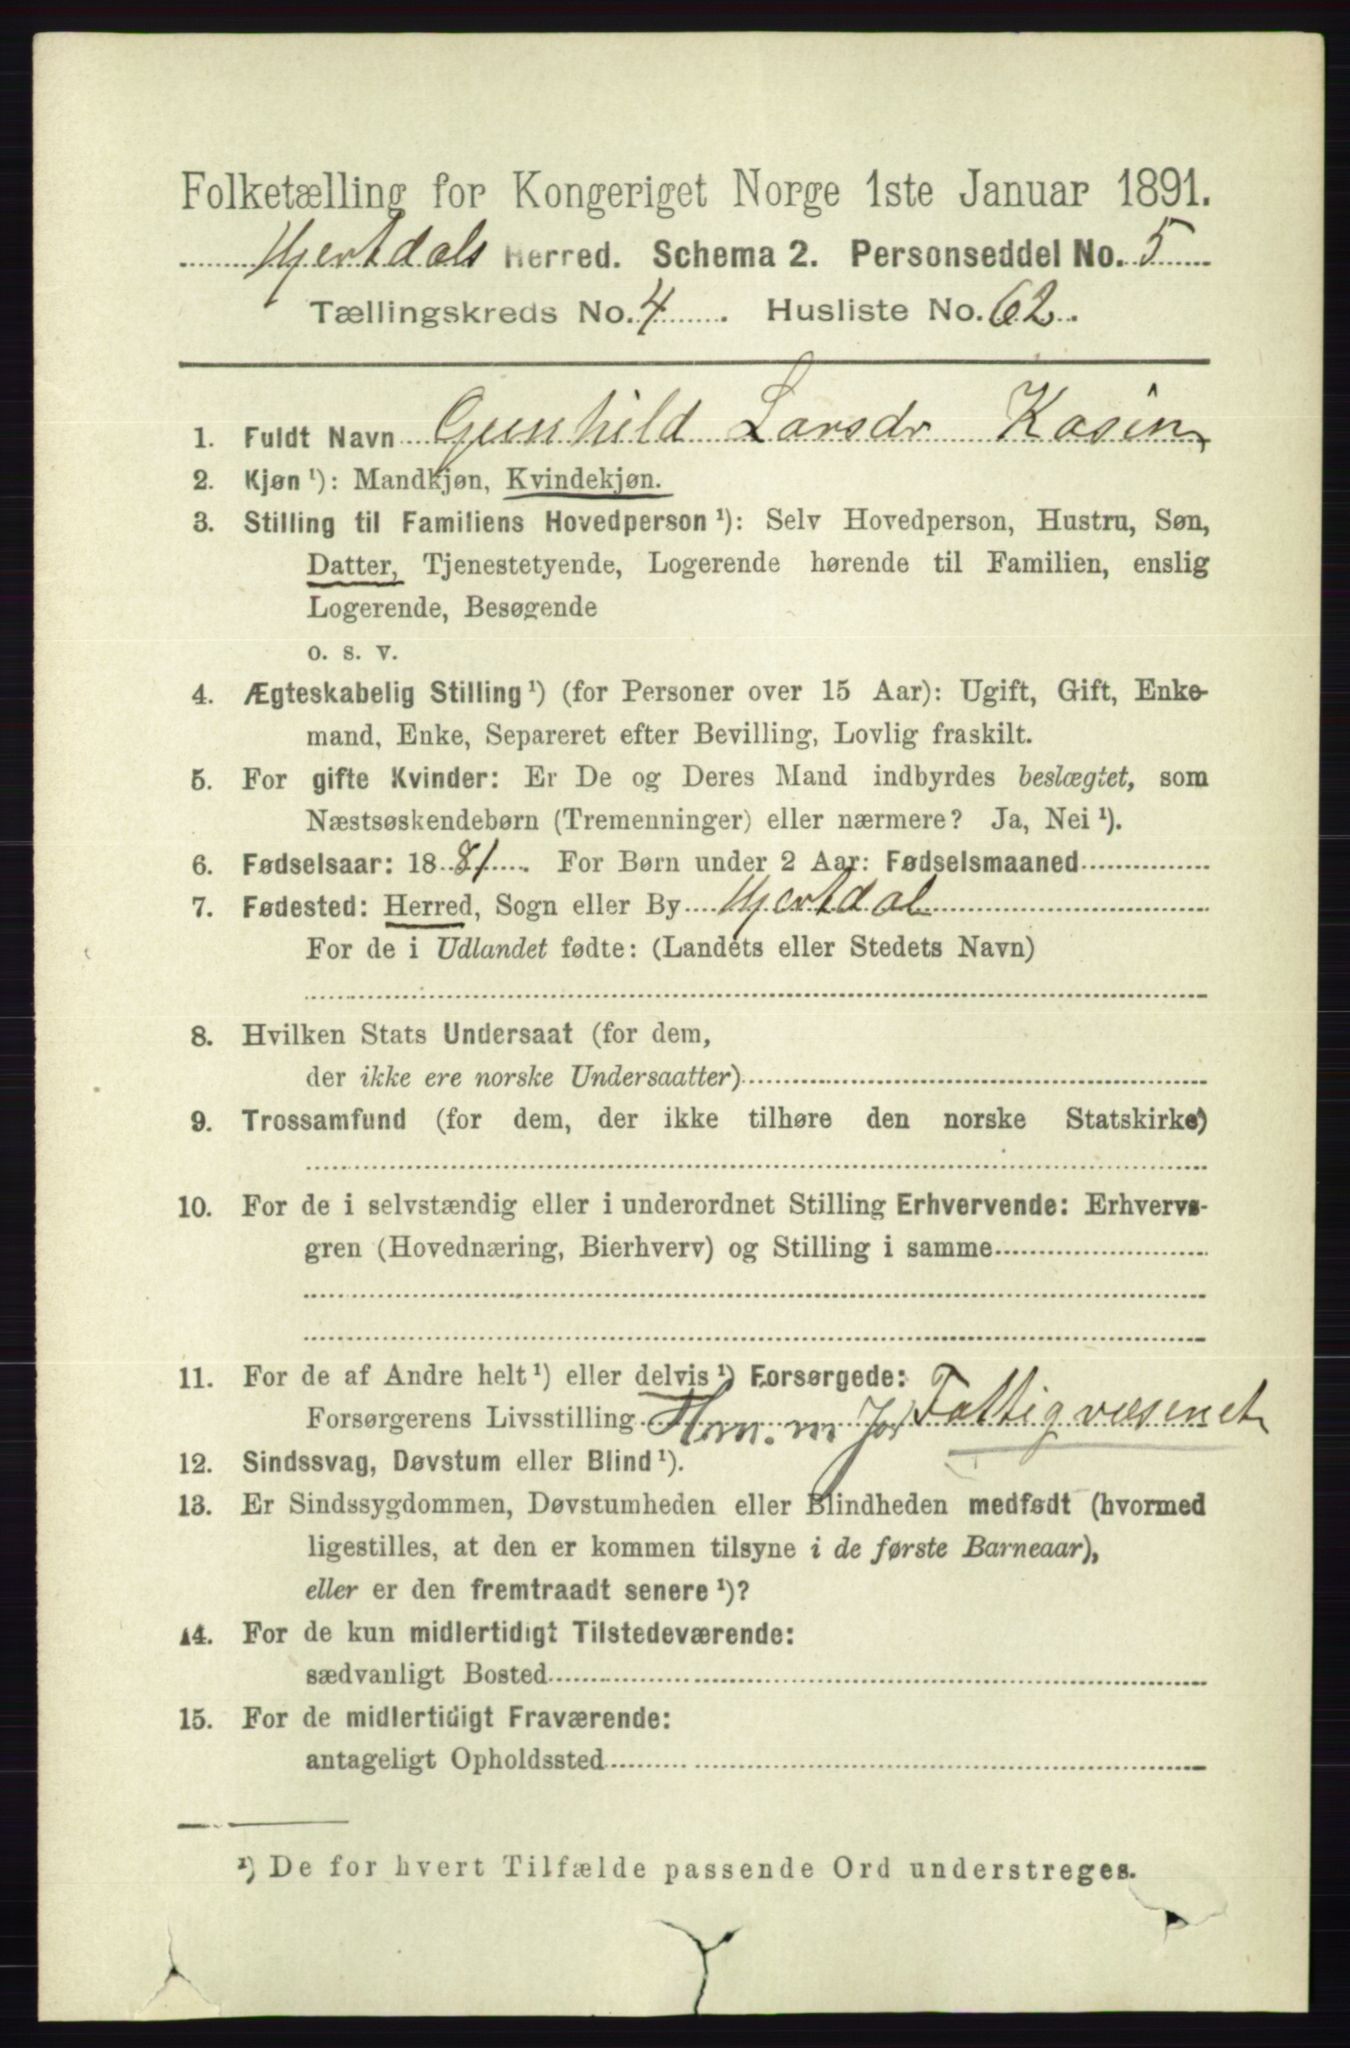 Folketælling for Kongeriget Norge 1ste Januar 1891.
Hjertdals Herred. Schema 2. Personseddel No. 5
Tællingskreds No. 4. Husliste No. 62.
1. Fuldt Navn Gunhild Larsdr Kasin
2. Kjøn ¹): Mandkjøn, Kvindekjøn.
3. Stilling til Familiens Hovedperson ¹): Selv Hovedperson, Hustru, Søn,
Datter, Tjenestetyende, Logerende hørende til Familien, enslig
Logerende, Besøgende
o. s. v.
4. Ægteskabelig Stilling ¹) (for Personer over 15 Aar): Ugift, Gift, Enke-
mand, Enke, Separeret efter Bevilling, Lovlig fraskilt.
5. For gifte Kvinder: Er De og Deres Mand indbyrdes beslægtet, som
Næstsøskendebørn (Tremenninger) eller nærmere? Ja, Nei ¹).
6. Fødselsaar: 1881. For Børn under 2 Aar: Fødselsmaaned
7. Fødested: Herred, Sogn eller By Hjertdal
For de i Udlandet fødte: (Landets eller Stedets Navn)
8. Hvilken Stats Undersaat (for dem,
der ikke ere norske Undersaatter)
9. Trossamfund (for dem, der ikke tilhøre den norske Statskirke)
10. For de i selvstændig eller i underordnet Stilling Erhvervende: Erhvervs-
gren (Hovednæring, Bierhverv) og Stilling i samme
11. For de af Andre helt ¹) eller delvis ¹) Forsørgede:
Forsørgerens Livsstilling Hm. m Jor Fattigvæsenet
12. Sindssvag, Døvstum eller Blind ¹).
13. Er Sindssygdommen, Døvstumheden eller Blindheden medfødt (hvormed
ligestilles, at den er kommen tilsyne i de første Barneaar),
eller er den fremtraadt senere ¹)?
14. For de kun midlertidigt Tilstedeværende:
sædvanligt Bosted
15. For de midlertidigt Fraværende:
antageligt Opholdssted
¹) De for hvert Tilfælde passende Ord understreges.